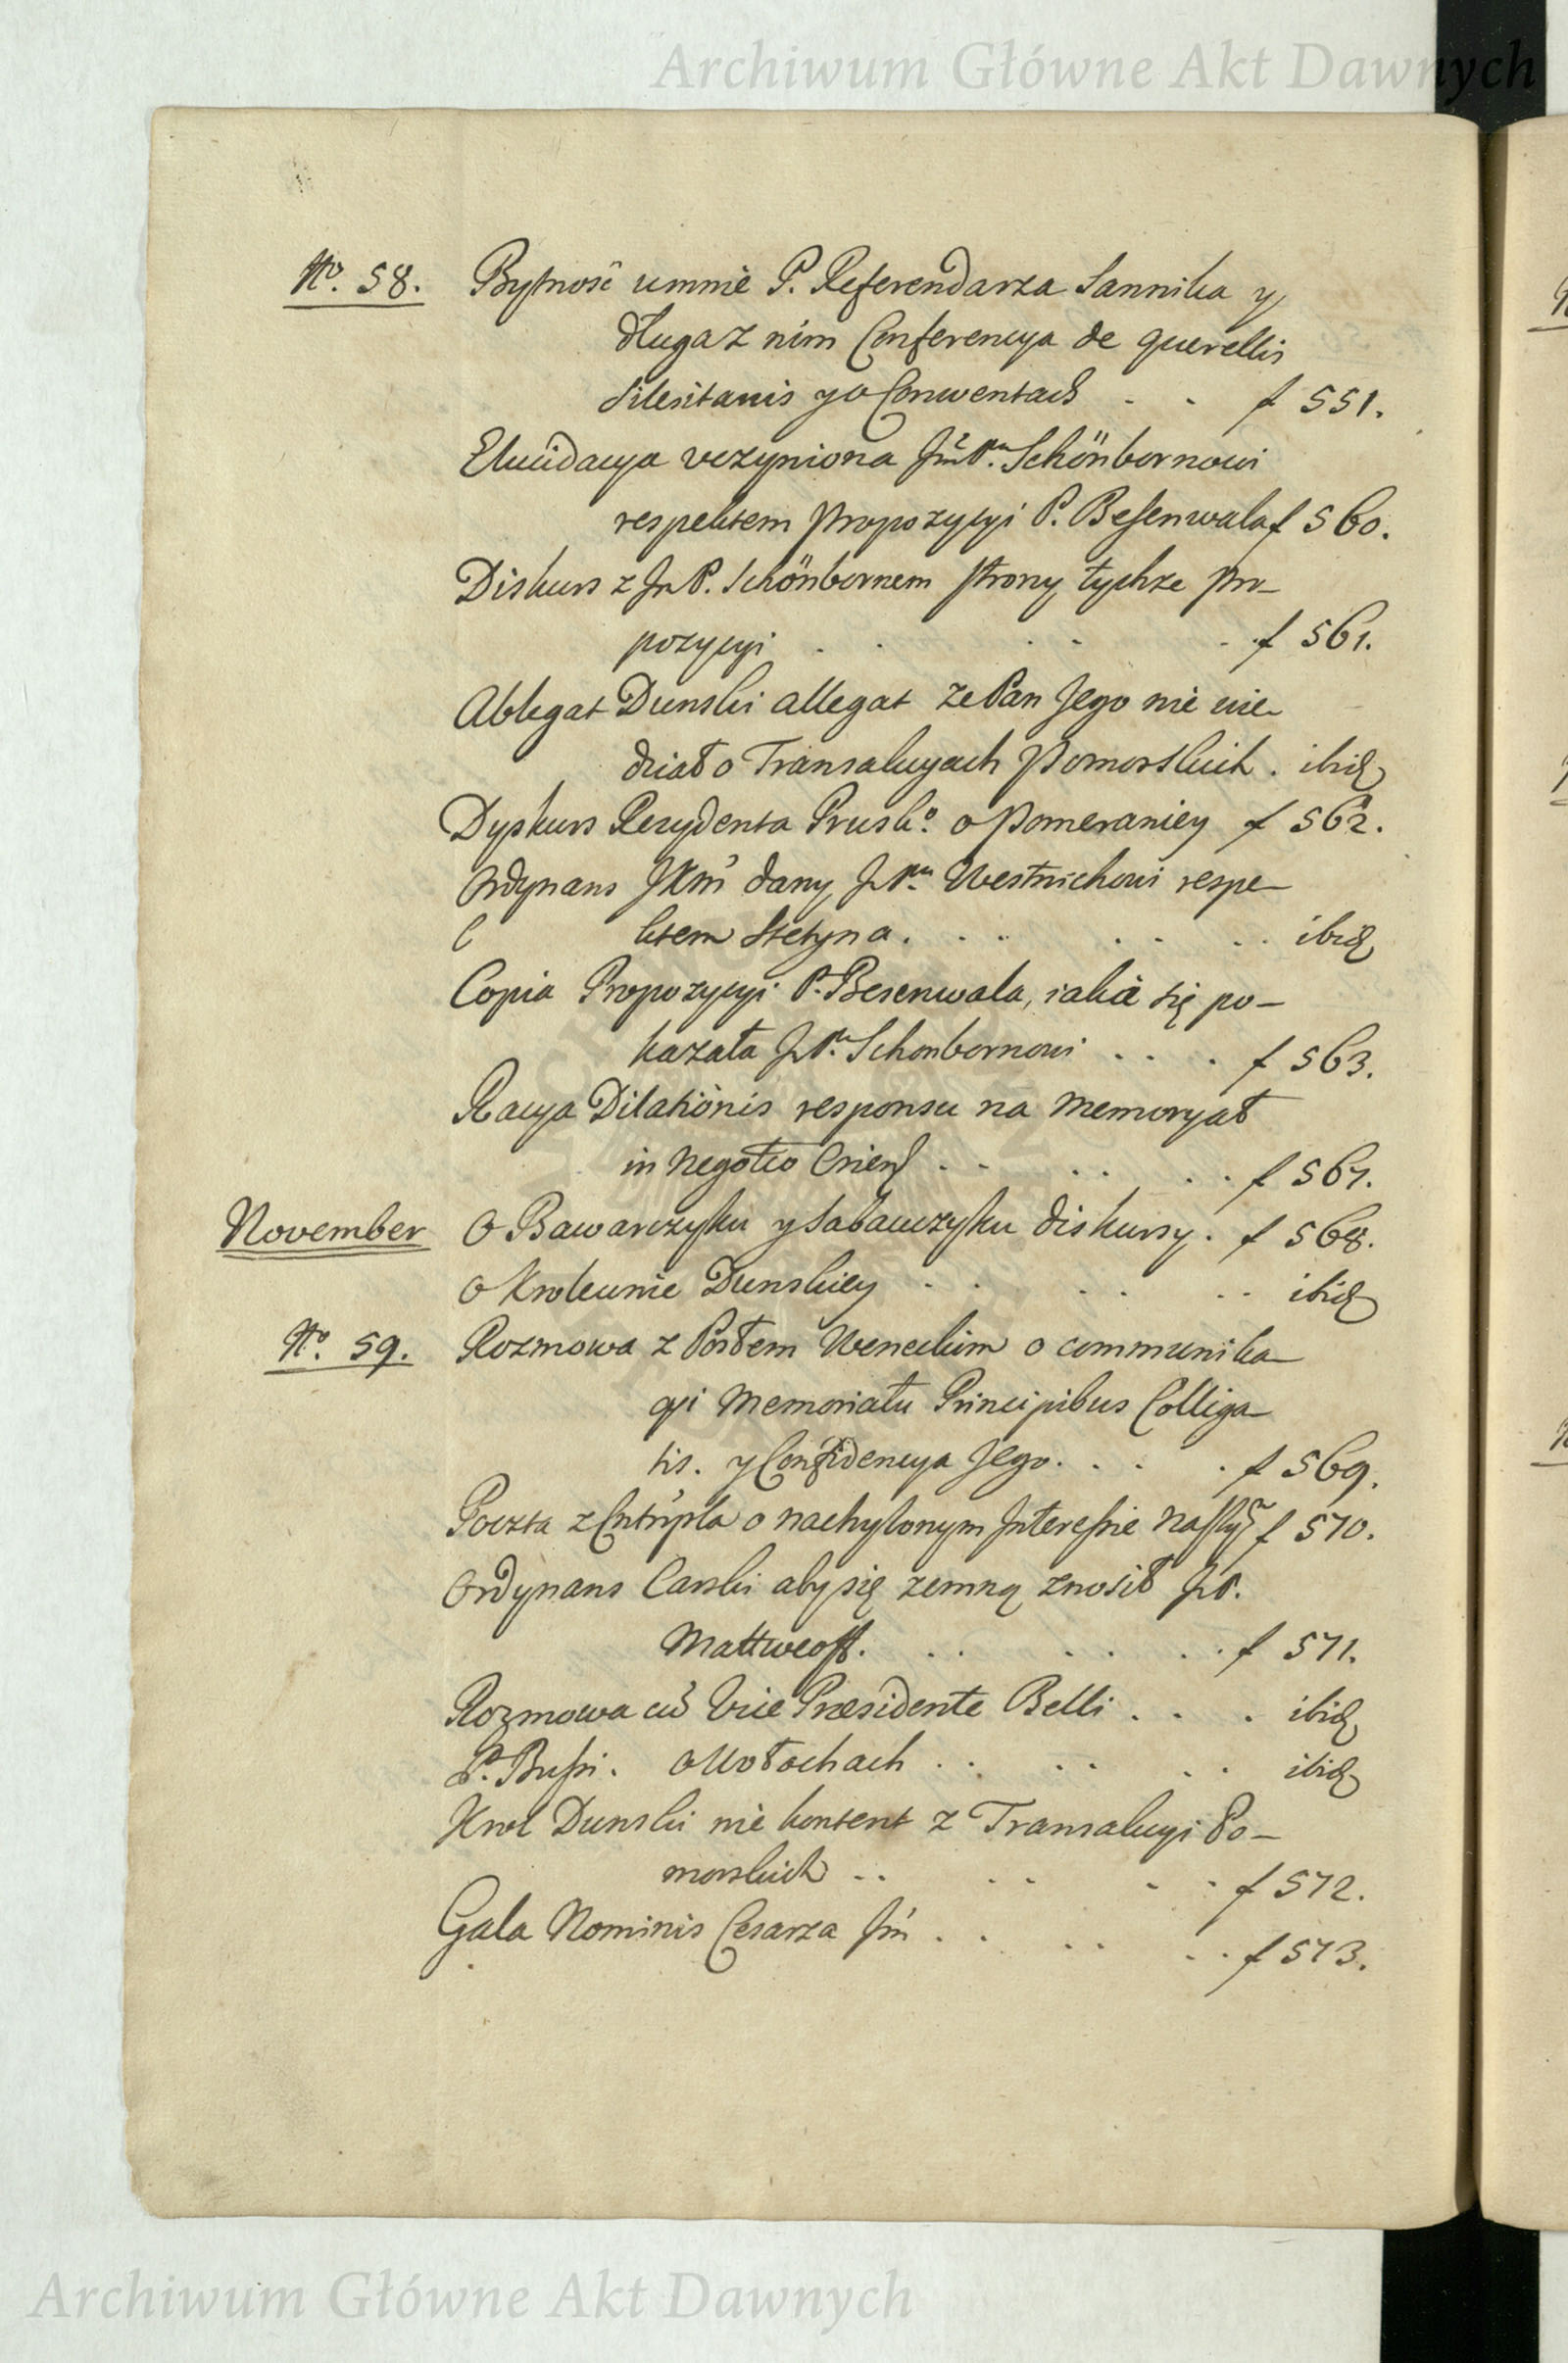 Archiwum Główne Akt Dawnych
No. 58. Bytność umnie P. Referendarza Sannika y
długa z nim Conferencya de querellis
Silesitanis y o Conwentach . . f 551.
Elucidacya uczyniona Jmć Pu. Schönbornowi
respektem Propozycyi P. Besenwala f 560.
Diskurs z Jn P. Schönbornem strony tychże pro-
pozycyi . . . . . f 561.
Ablegat Dunski allegat ze Pan Jego nie wie-
dział o Transakcyach Pomorskich . ibid
Dyskurs Rezydenta Prusko. o Pomeraniey f 562.
Ordynans JKm dany J Pu Westrichowi respe-
ktem Stetyna . . . . . ibid
Copia Propozycyi P. Besenwala, iakié się po-
kazała J Pu Schonbornowi . . . f 563.
Racya Dilationis responsu na Memoryał
in Negotio Orient . . . . . f 567.
November O Bawarczyku y Sabauczyku diskursy. f 568.
O Krolewnie Dunskiey . . . . . ibid
No. 59. Rozmowa z Posłem Weneckim o communika-
cyi Memoriału Principibus Colliga-
tis. y Confidencya Jego. . . . f 569.
Poczta z Cntrpla o nachylonym Interessie f 570.
Ordynans Carski aby się zemną znosił JP.
Mattweoff. . . . . . f 571.
Rozmowa cū Vice Præsidente Belli . . . ibid
P. Bussi. o Wołochach . . . . . ibid
Krol Dunski nie kontent z Transakcyi Po-
morskich . . . . . f 572.
Gala Nominis Cesarza Jm . . . . . f 573.
Archiwum Główne Akt Dawnych